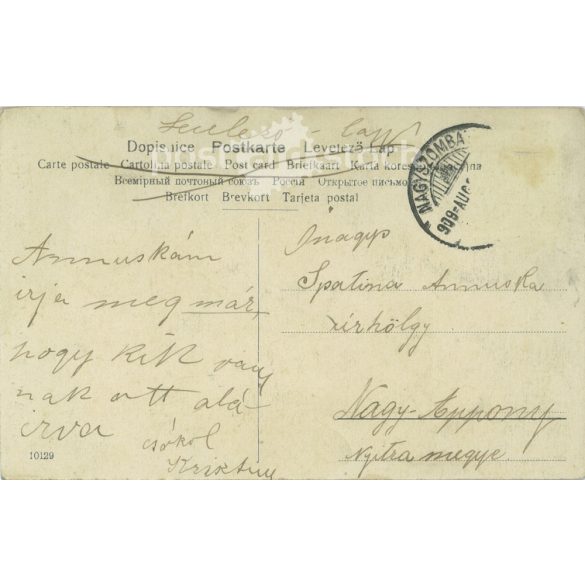 Levelező-lap
Dopisnice Postkarte Levelező Lap
Carte postale Cartolina postale Post card Briefkaart Karta kores
Всемірный почтовый союзъ Россія Открытое письмо
Brefkort Brevkort Tarjeta postal
NAGYSZOMBAT
909 AUG
Annuskám
irja meg már,
hogy kik van
nak ott alá
irva
csókol
10129
Spatina Annuska
úrhölgy
Nagy-Appony
Nyitra megye